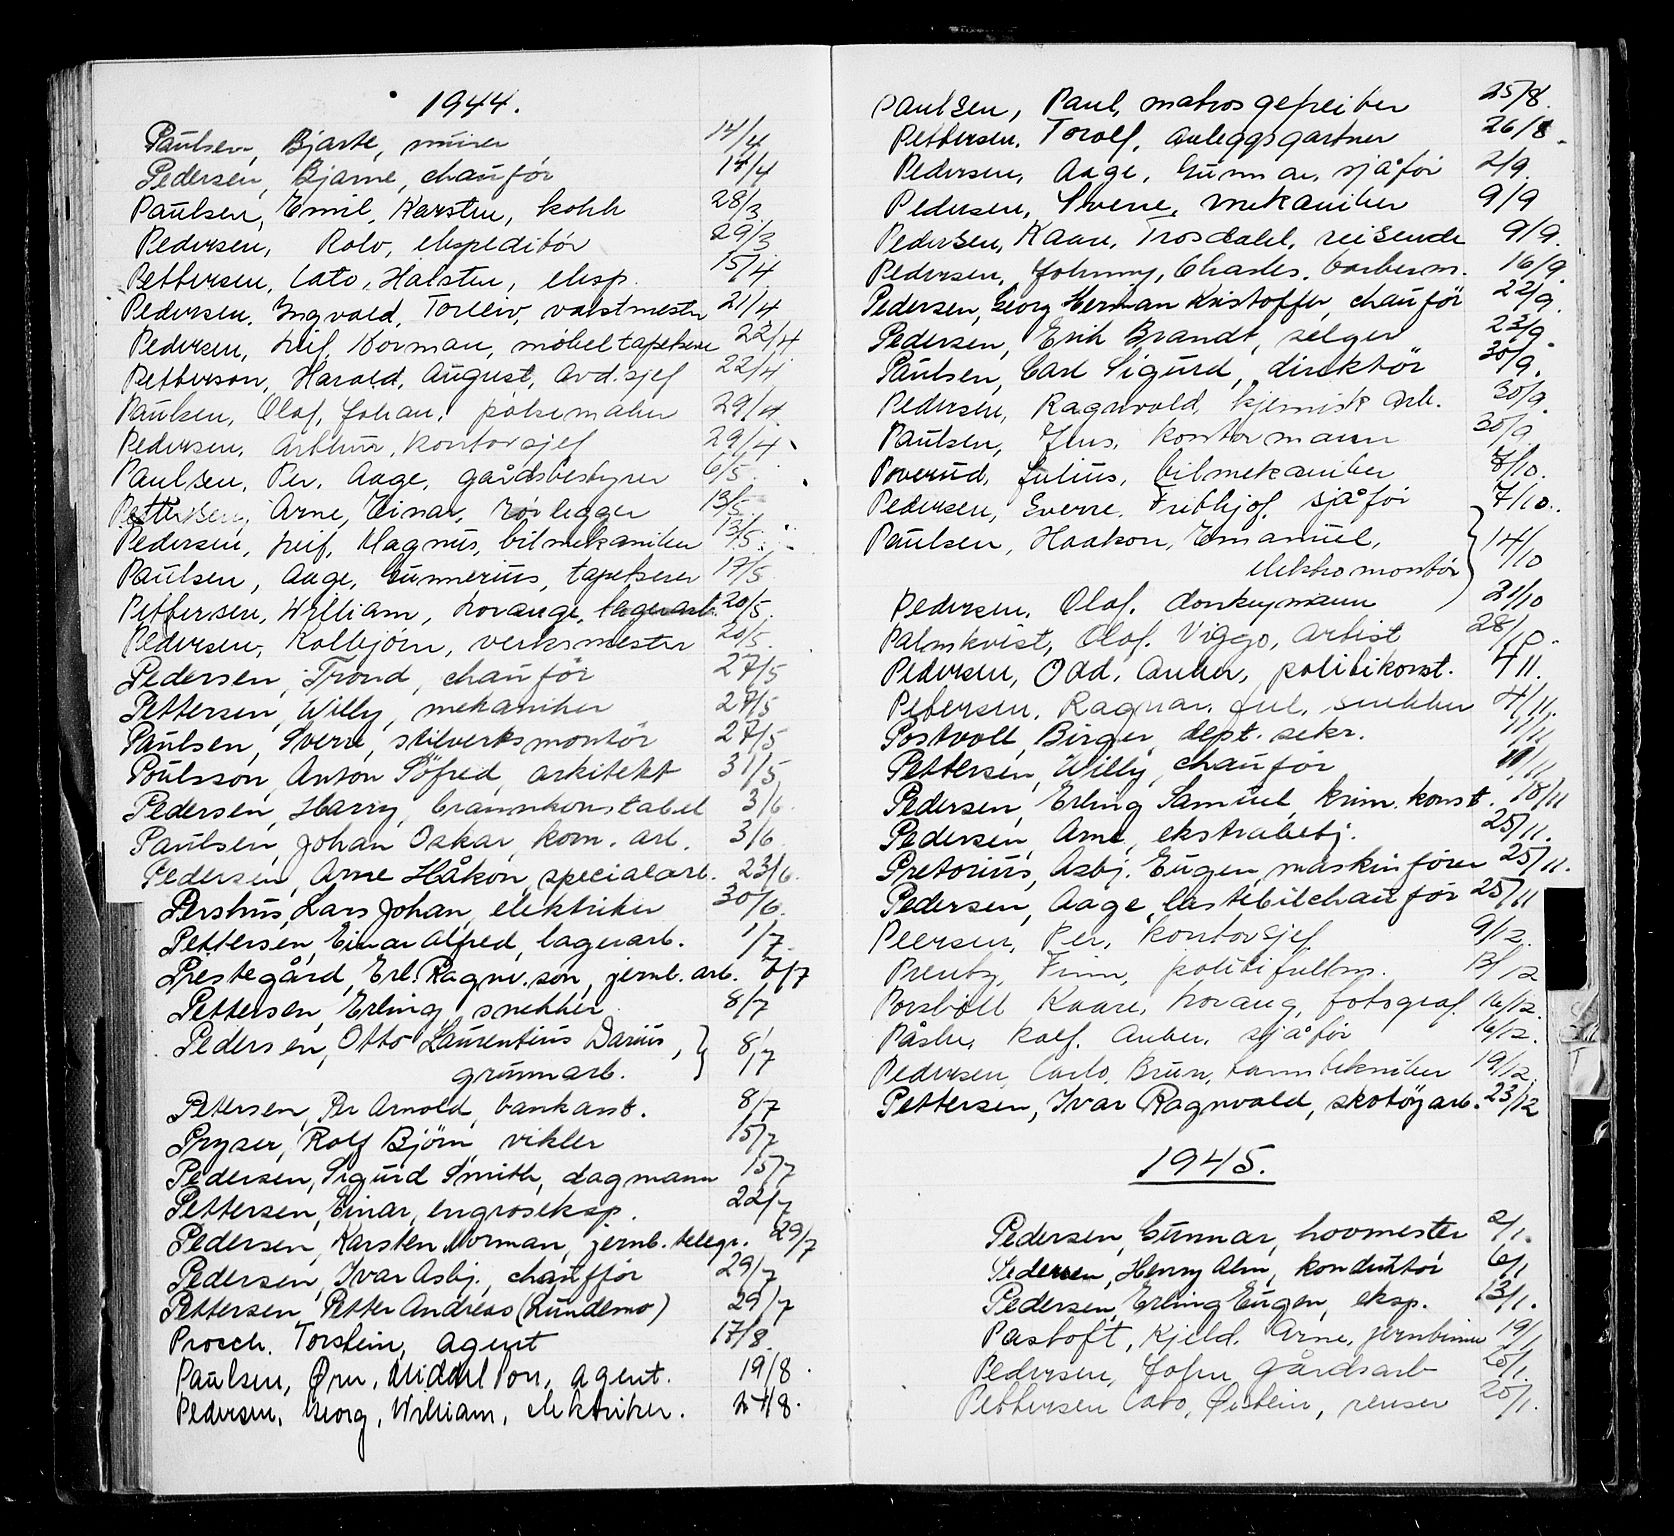 1944.
Paulsen, Bjarte, murer 14/4
Pedersen, Bjarne, chaufför 14/4
Paulsen, Emil, Karsten, kokk 28/3
Pedersen, Rolv, ekspeditör 29/3
Pettersen, Cato, Halsten, eksp. 15/4
Pedersen. Ingvald, Torleiv, vaktmester 21/4
Pedersen, Leif, Norman, möbeltapetserer 22/4
Petterson, Harald, August, Avd.sjef 22/4
Paulsen, Olaf, Johan, pölsemaker 29/4
Pedersen, Arthur, kontorsjef 29/4
Paulsen, Per, Aage, gårdsbestyrer 6/5
Pettersen, Arne, Einar, rörlegger 13/5
Pedersen, Leif, Magnus, bilmekaniker 13/5
Paulsen, Aage, Gunnerius, tapetserer 17/5
Pettersen, William, Norange, lagerarb. 20/5
Pedersen, Kolbjörn, verksmester 20/5
Pedersen, Trond, chaufför 27/5
Pettersen, Willy, mekaniker 27/5
Paulsen, Sverre, stilverksmontör 27/5
Poulsson, Anton Söfred, arkitekt 31/5
Pedersen, Harry, brannkonstabel 3/6.
Paulsen, Johan Oskar, kom. arb. 3/6
Pedersen, Arne Håkon, specialarb. 23/6.
Pershus, Lars Johan, elektriker 30/6.
Pettersen, Einar Alfred, lagerarb. 1/7.
Prestegård, Erl. Ragnv. son, jernb. arb. 8/7
Pettersen, Erling, snekker 8/7
Pedersen, Otto Laurentius Darius, } 8/7
grunnarb.
Petersen, Per Arnold, bankass. 8/7
Pryser, Rolf Björn, vikler 15/7
Pedersen, Sigurd Smith, dagmann 15/7
Pettersen, Einar, engroseksp. 22/7
Pedersen, Karsten Norman, jernb. telegr. 29/7
Pedersen, Ivar Asbj., chaufför 29/7
Pettersen, Petter Andreas (Lundemo) 29/7
Prosch. Torstein, agent 17/8.
Paulsen, Ørn, Middelton, agent. 19/8.
Pedersen, Georg, William, elektriker. 24/8.
Paulsen, Paul, matrosgefreiter 25/8.
Pettersen, Torolf, anleggsgartner 26/8.
Pedersen, Aage, Gunnar, sjåför 2/9.
Pedersen, Sverre, mekaniker 9/9
Pedersen, Kaare, Trosdahl, reisende 9/9.
Pedersen, Johnny, Charles, barberm. 16/9.
Pedersen, Georg Herman Kristoffer, chaufför 22/9.
Pedersen, Erik Brandt, selger 23/9.
Paulsen, Carl Sigurd, direktör 30/9.
Pedersen, Ragnvald, kjemisk arb. 30/9.
Paulsen, Jens, kontormann 30/9
Poverud, Julius, bilmekaniker 7/10.
Pedersen, Sverre, Frithjof, sjåför 7/10.
Paulsen, Haakon, Emanuel, } 14/10
elektromontör
Pedersen, Olaf, donkeymann 21/10
Palmkvist, Olaf, Viggo, Artist 28/10.
Pedersen, Odd, Anker, politikonst. 4/11.
Petersen, Ragnar, Jul, snekker 4/11.
Postvoll, Birger, dept. sekr. 11/11
Pettersen, Willy, chaufför 11/11
Pedersen, Erling Samuel, krim. konst. 18/11
Pedersen, Arne, ekstrabetj. 25/11.
Pretorius, Asbj. Eugen, maskinförer 25/11.
Pedersen, Aage, lastebilchaufför 25/11
Peersen, Per, kontorsjef. 9/12.
Prentz, Finn, politifullm. 13/12
Porsböll Kaare, Norang, fotograf. 16/12.
Påske, Rolf, Anker, sjåför 16/12.
Pedersen, Carlo, Brun, tanntekniker 19/12.
Pettersen, Ivar Ragnvald, skotöyarb. 23/12
1945.
Pedersen, Gunnar, hovmester 2/1.
Pedersen, Henry Alm, konduktör 6/1
Pedersen, Erling Eugen, eksp. 13/1.
Pastoft, Kjeld, Arne, jernbinder 19/1
Pedersen, John gårdsarb 20/1.
Pettersen Cato, Øistein, renser 20/1.